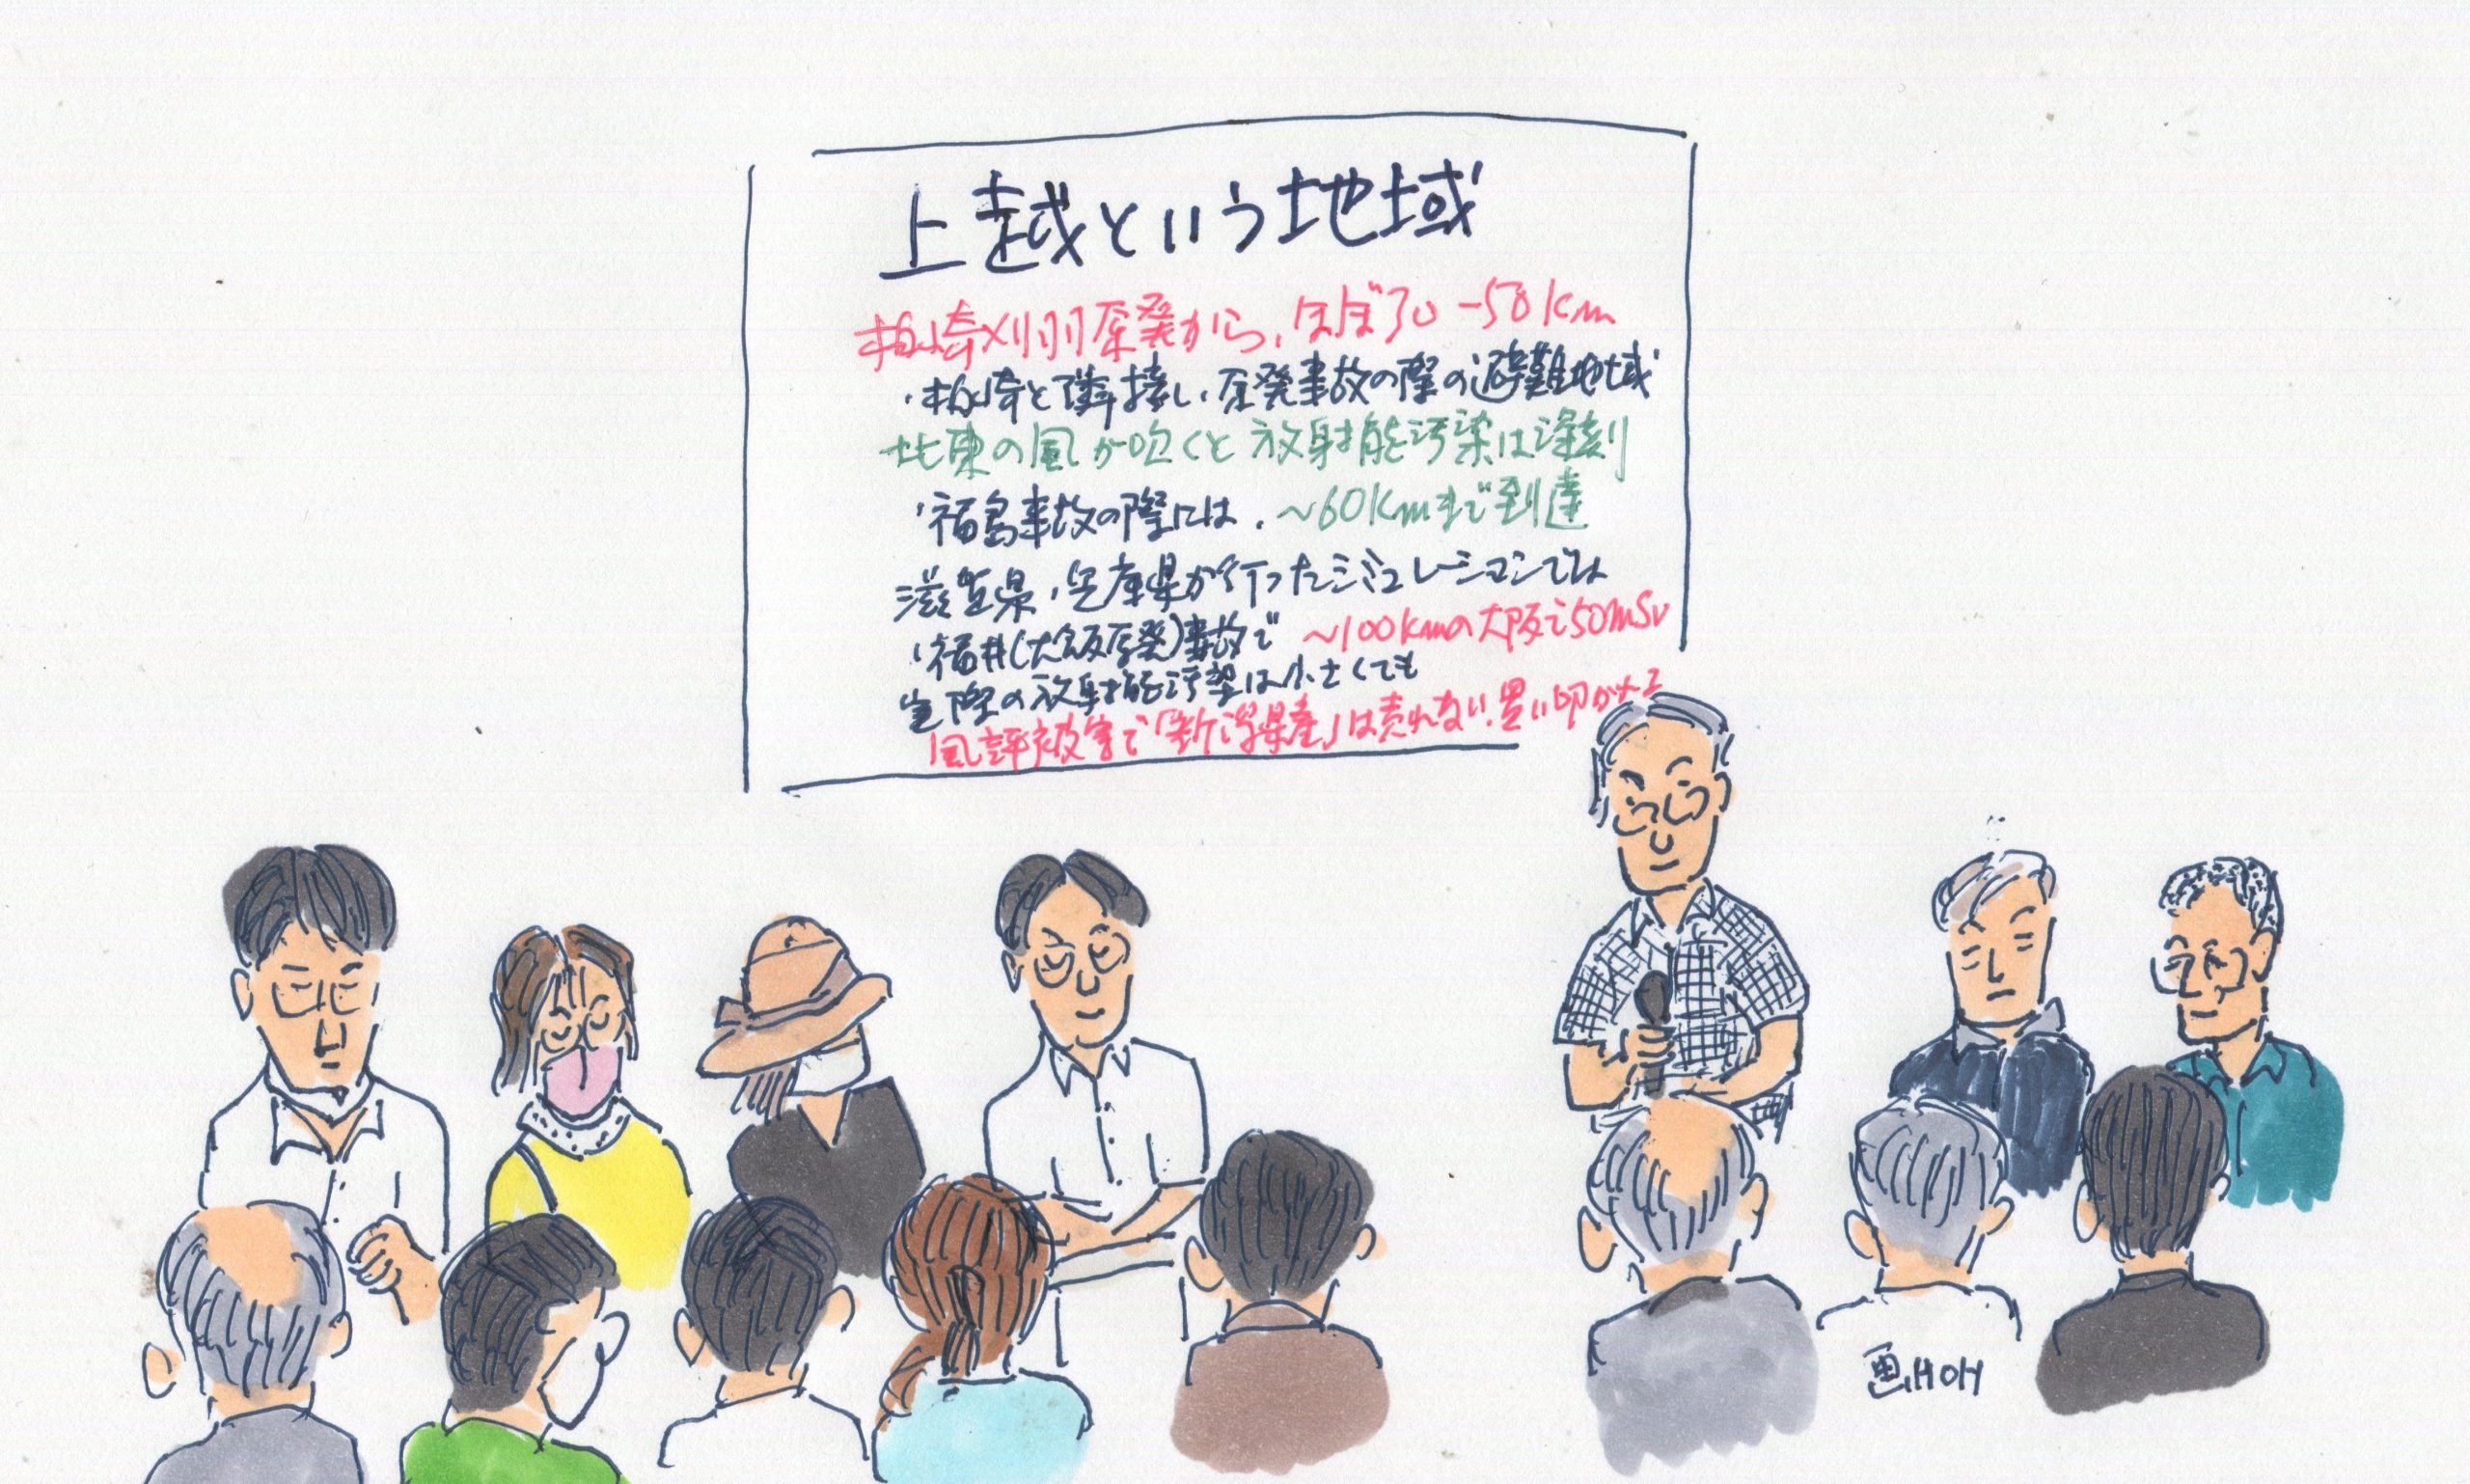 上越という地域
柏崎刈羽原発から、ほぼ30-50Km
・柏崎と隣接し、原発事故の際の避難地域
北東の風が吹くと放射能汚染は深刻
・福島事故の際には、~60Kmまで到達
滋賀県、兵庫県が行ったシミュレーションでは
・福井(大飯原発)事故で ~100kmの大阪で50mSv
実際の放射能汚染は小さくても
風評被害で「新潟県産」は売れない、買い叩かれる
画HOH